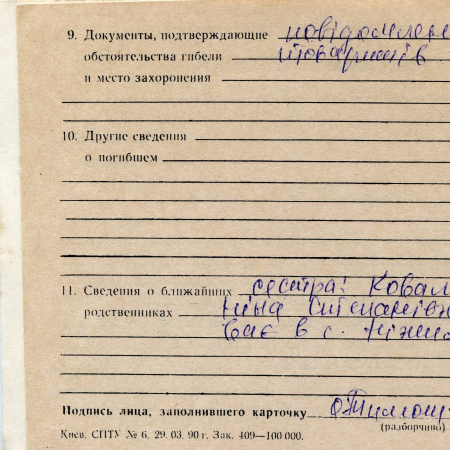 9. Документы, подтверждающие повідомлен
обстоятельства гибели товаришів
и место захоронения
10. Другие сведения
о погибшем
11. Сведения о ближайших сестра: Ковал
родственниках Ніна Степанівн
ває в с.
Подпись лица, заполнившего карточку О.Тимощ
(разборчиво)
Киев. СПТУ № 6. 29. 03. 90 г. Зак. 409—100 000.